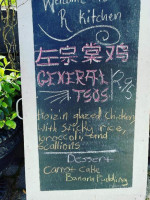 Welcome to
R Kitchen
左宗棠鸡
GENERAL
TSOS
Hoizin glazed Chicken
With Sticky rice,
broccoli, and
scallions
Dessert
Carrot Cake
Banana Pudding